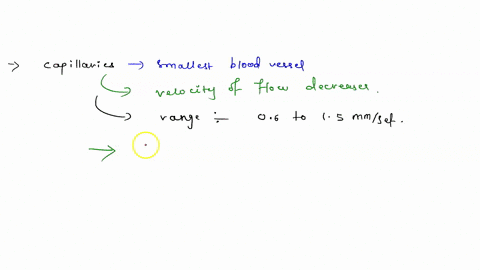 → capillaries → smallest blood vessel
→ velocity of flow decreases.
→ range ÷ 0.6 to 1.5 mm/sec.
→